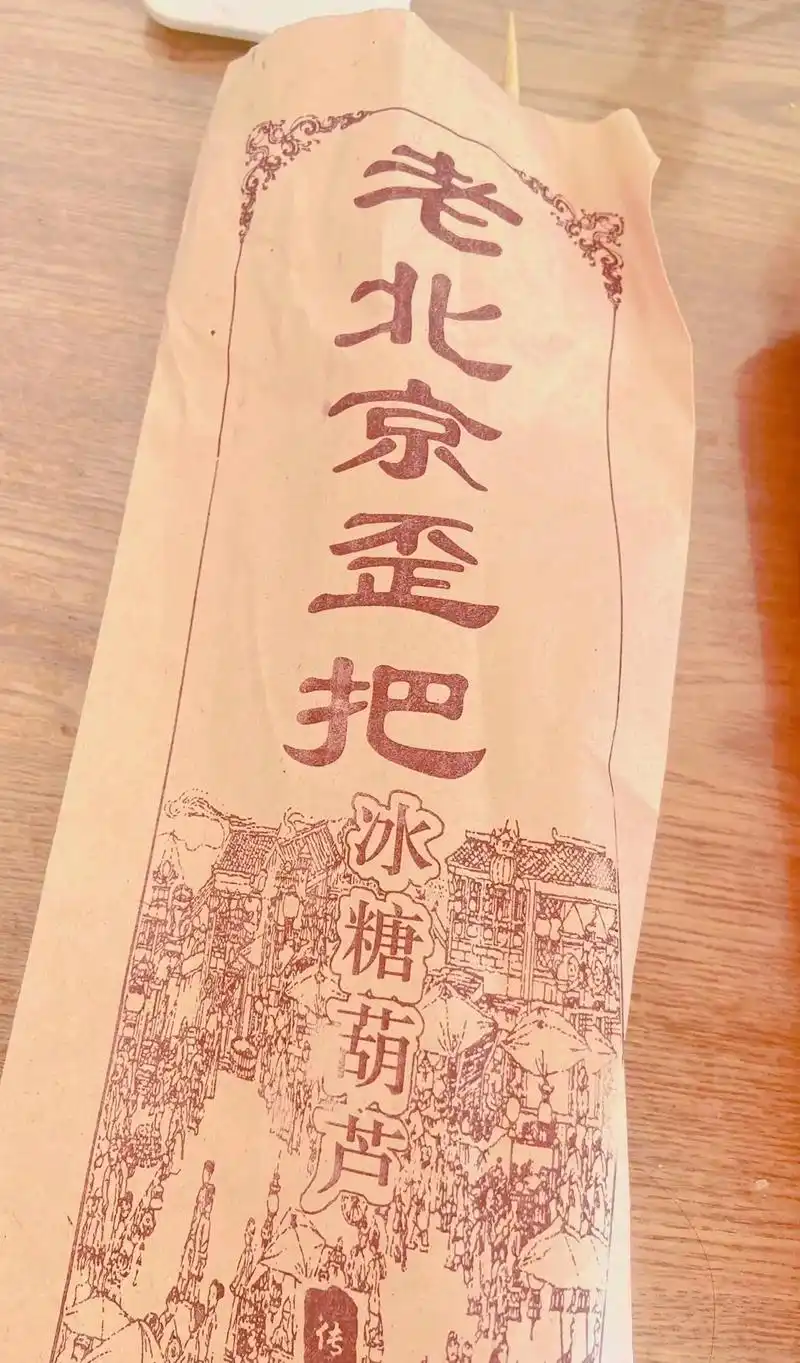 老北京歪把
冰糖葫芦
传